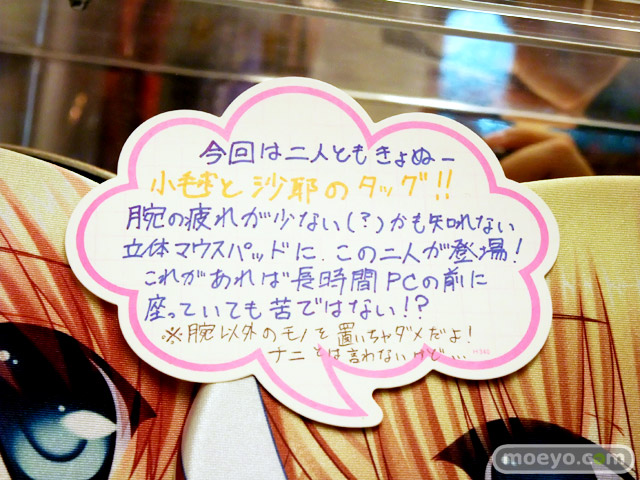 今回は二人ともきょぬー
小毬と沙耶のタッグ!!
腕の疲れが少ない(?)かも知れない
立体マウスパッドに、この二人が登場!
これがあれば長時間PCの前に
座っていても苦ではない!?
※腕以外のモノを置いちゃダメだよ!
ナニとは言わないけど...
moeyo.com